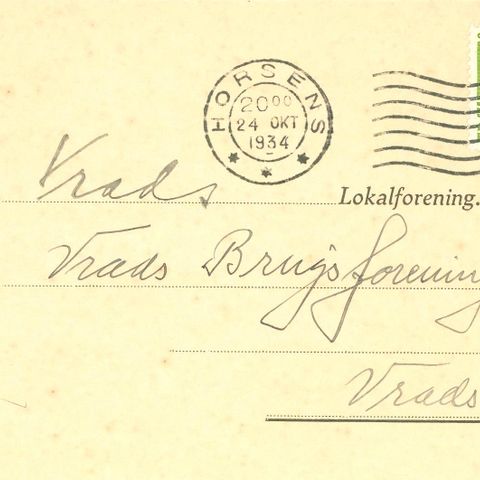 HORSENS
20 00
24 OKT
1934
Vrads Lokalforening.
Vrads Brugsforening
Vrads